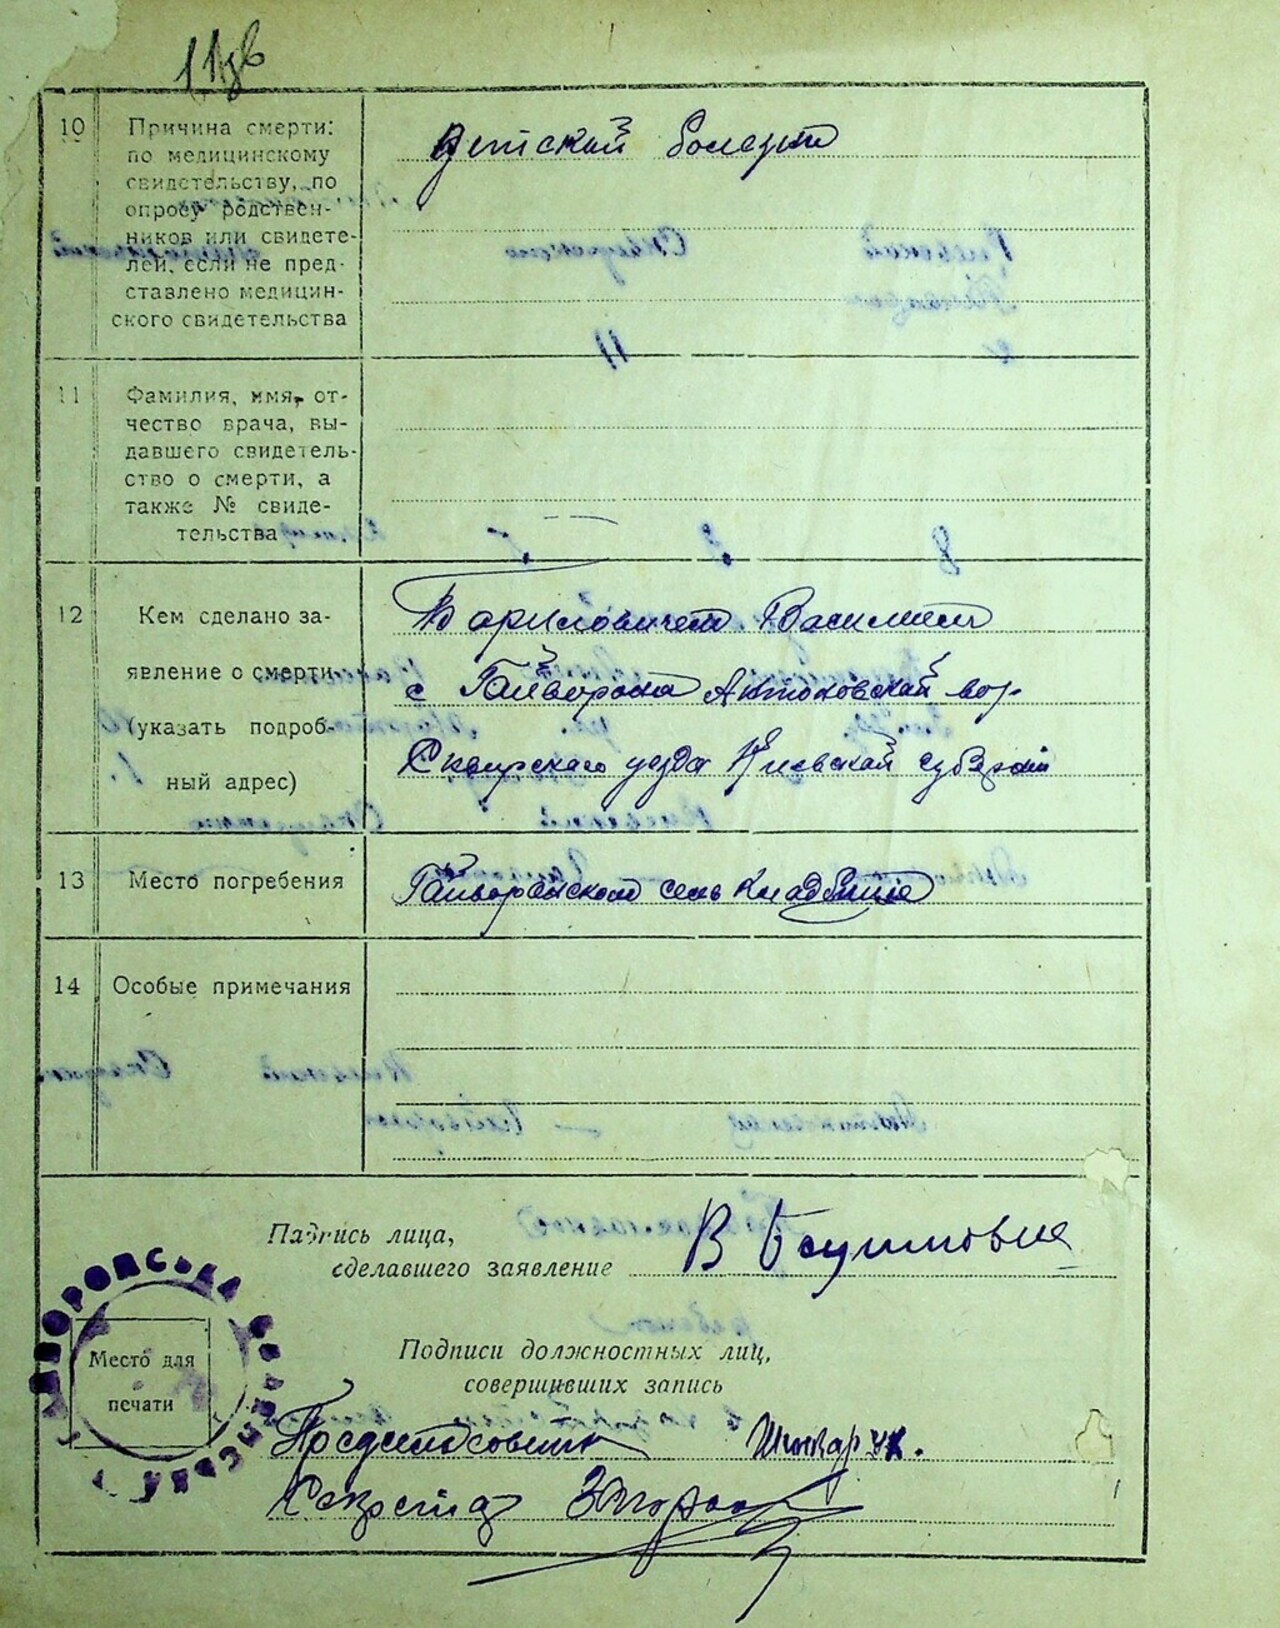 10
Причина смерти:
по медицинскому
свидетельству, по
опросу родствен-
ников или свидете-
лей, если не пред-
ставлено медицин-
ского свидетельства
Детской болезни
11
Фамилия, имя, от-
чество врача, вы-
давшего свидетель-
ство о смерти, а
также № свиде-
тельства
12
Кем сделано за-
явление о смерти
(указать подроб-
ный адрес)
Василием
с Гайворона Антоновской вол.
Сквирского уезда Киевской губернии
13
Место погребения
Гайворонском сель кладбище
14
Особые примечания
Подпись лица,
сделавшего заявление
В
Место для
печати
Подписи должностных лиц,
совершивших запись
Шинкарук.
Секретар